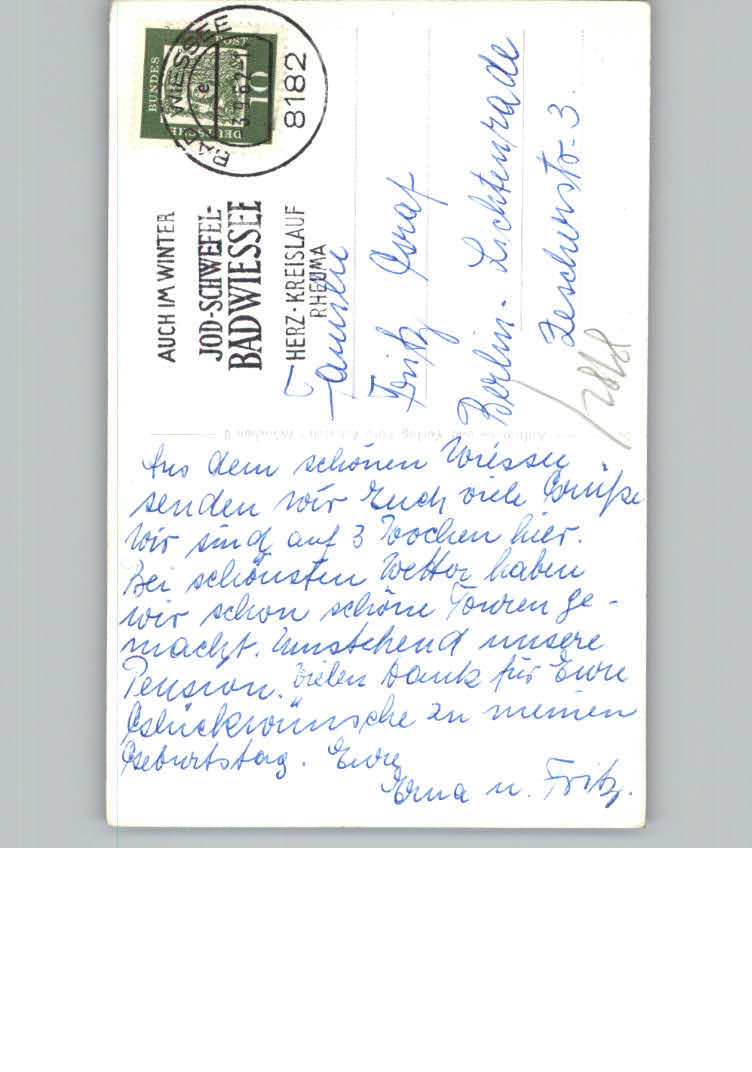 BUNDES
POST
DEUTSCHE
10
BAD WIESSEE
e
8182
AUCH IM WINTER
JOD-SCHWEFEL-
BADWIESSEE
HERZ-KREISLAUF
RHEUMA
Familie
Fritz Graf
Berlin-Lichtenrade
Zescherstr. 3.
Aus dem schönen Wiessee
senden wir Euch viele Grüße
Wir sind auf 3 Wochen hier.
Bei schönsten Wetter haben
wir schon schöne Touren ge-
macht. Umstehend unsere
Pension. Vielen Dank für Eure
Glückwünsche zu meinen
Geburtstag. Eure
Erna u. Fritz.